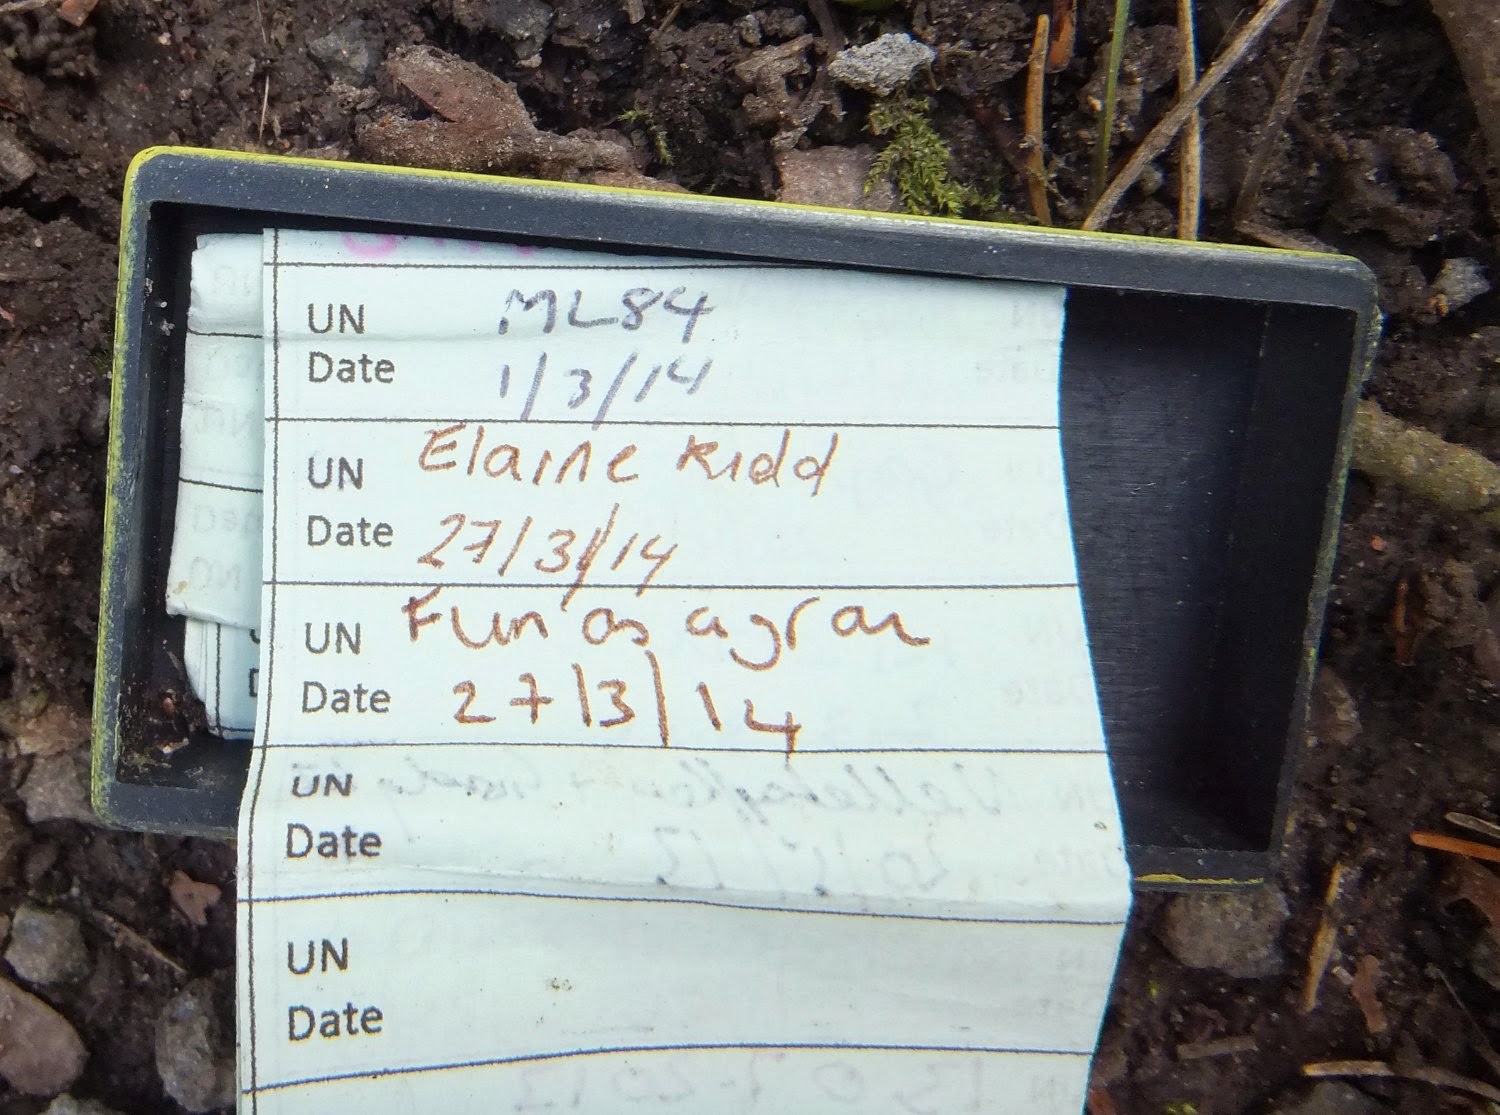 UN ML84
Date 1/3/14
UN Elaine Kidd
Date 27/3/14
UN Fun as a gran
Date 27/3/14
UN
Date
UN
Date